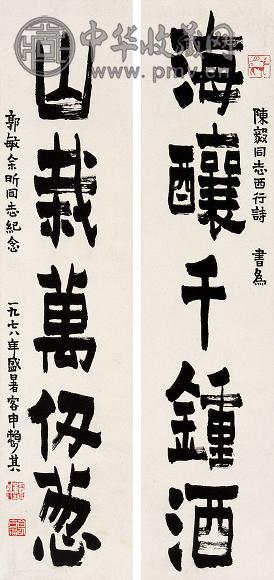 中华收藏网
www.pmv.cn
陳毅同志西行詩 書為
海釀千鍾酒
山栽萬仞葱
郭敏余昕同志紀念
一九七八年盛暑客申賴少其